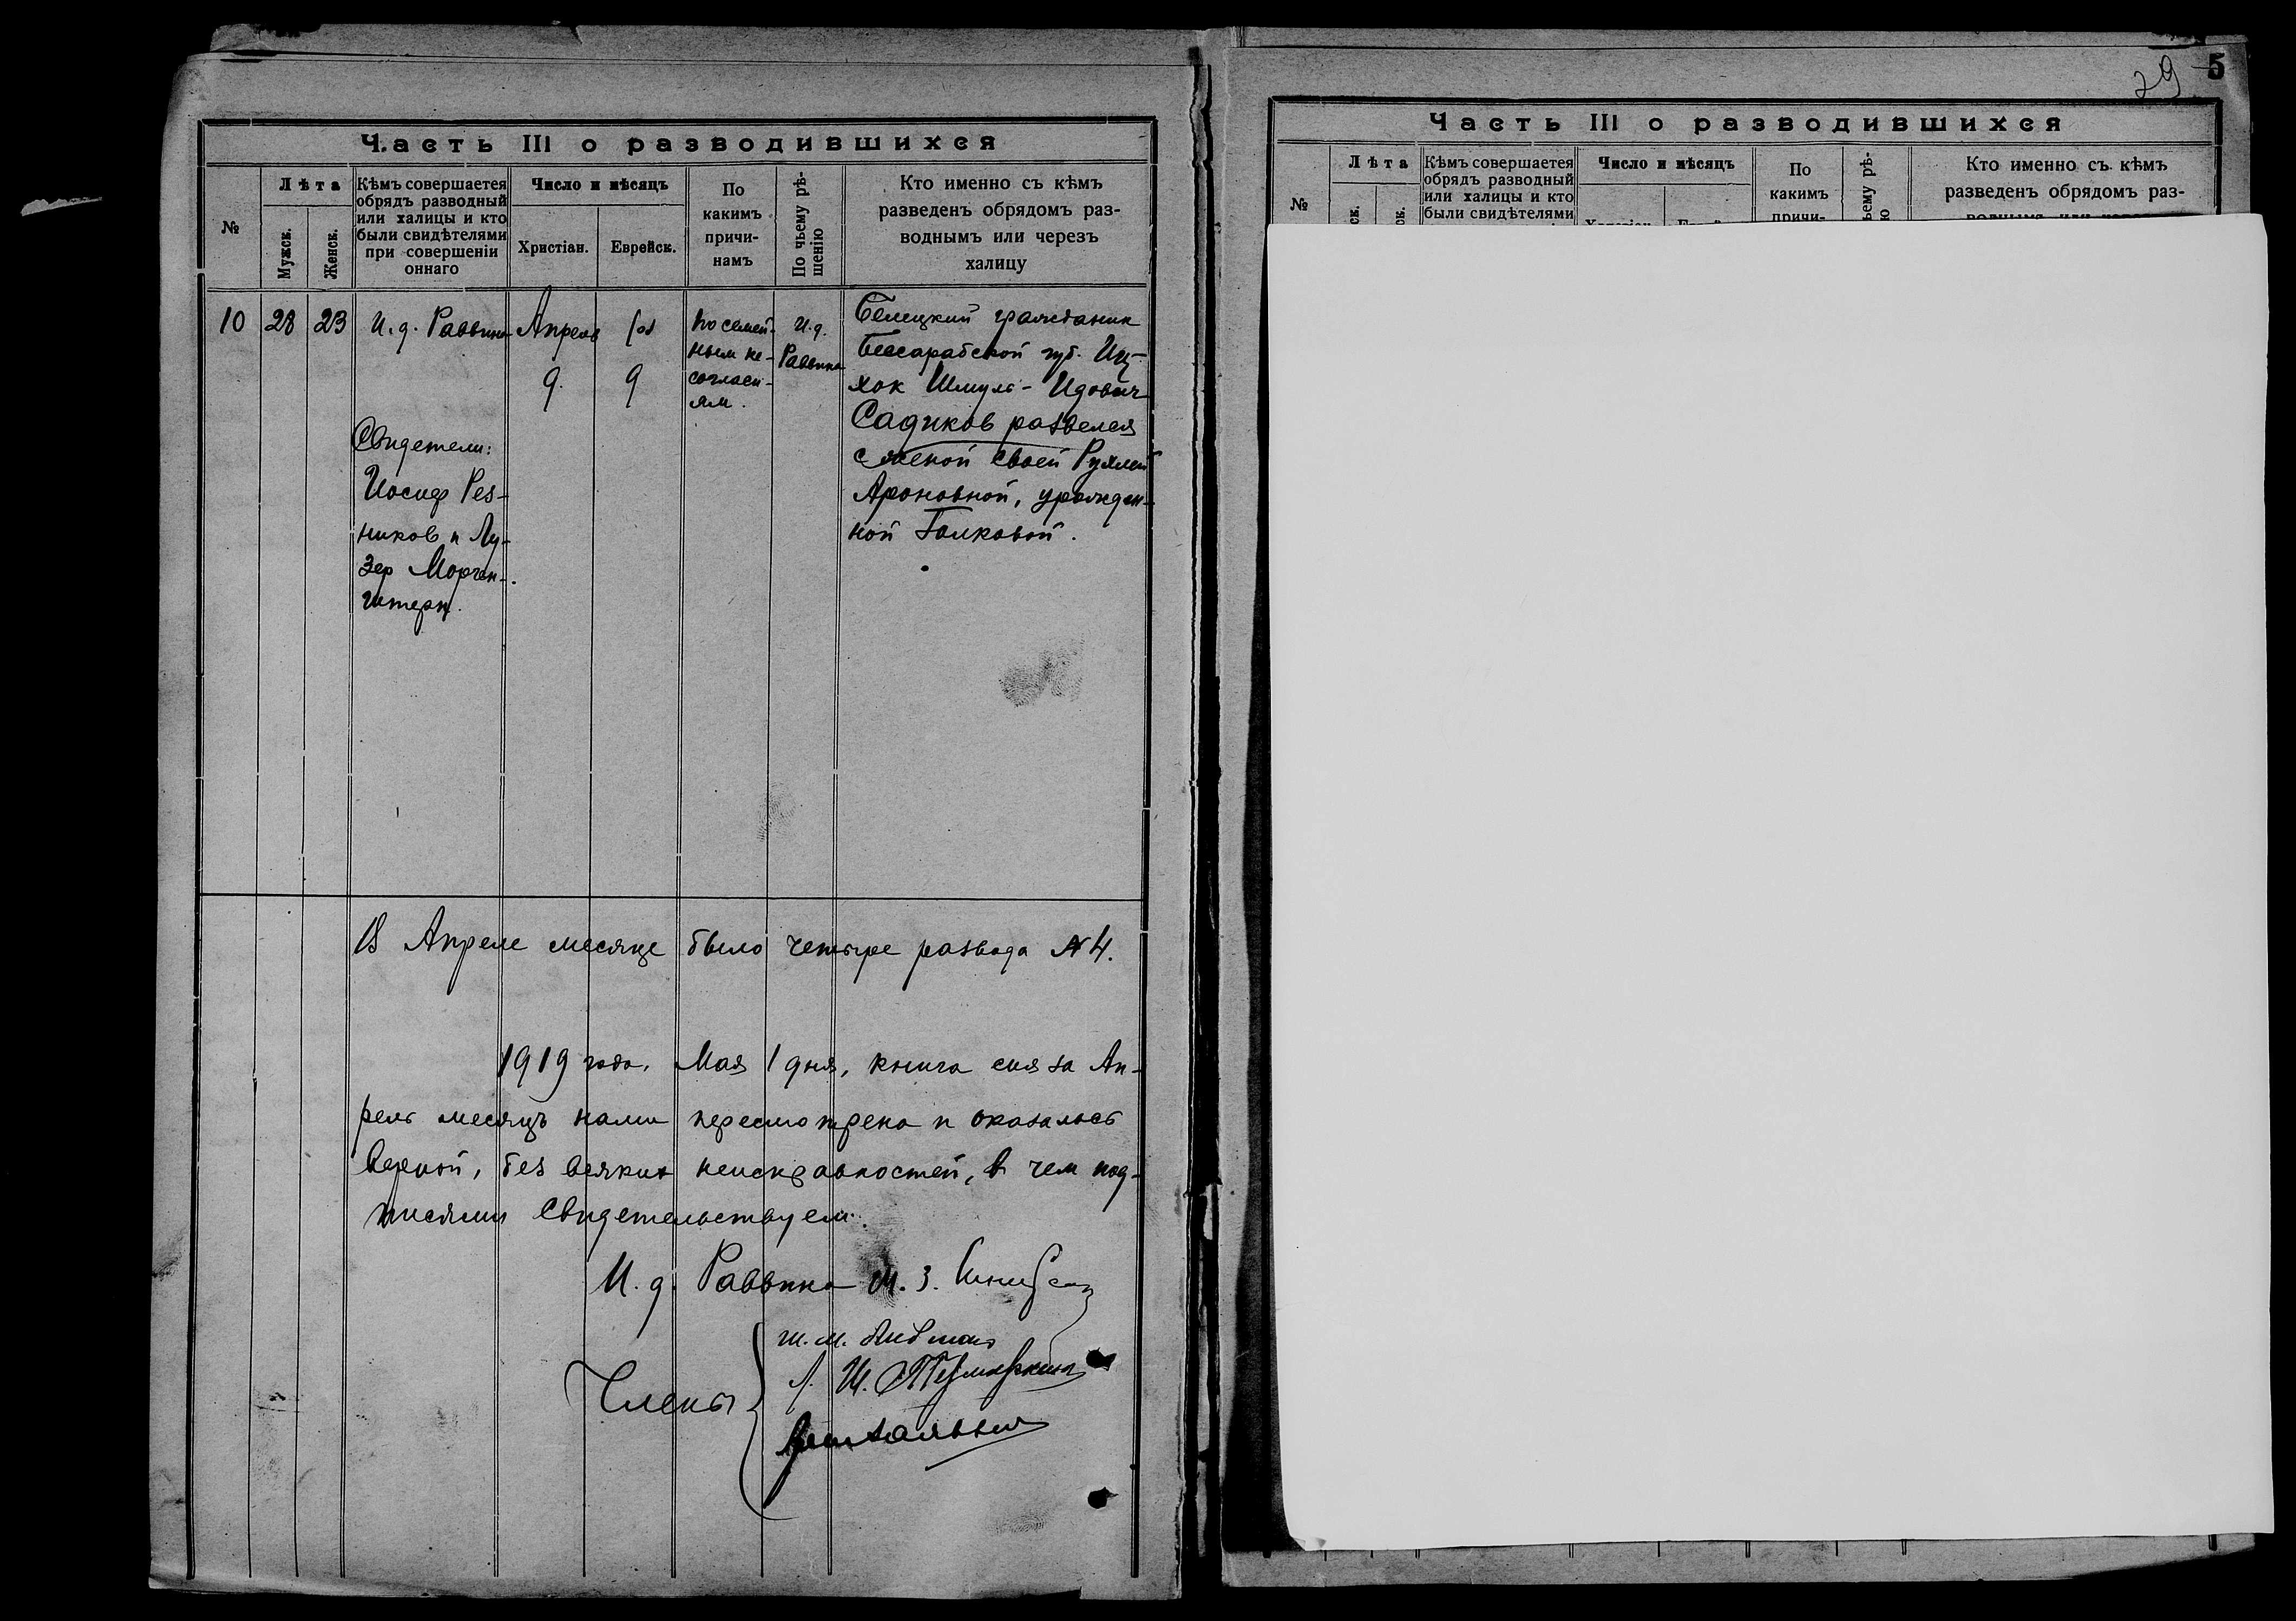 Часть III о разводившихся
№
Лѣта
Мужск.
Женск.
Кѣмъ совершается
обрядъ разводный
или халицы и кто
были свидѣтелями
при совершеніи
оннаго
Число и мѣсяцъ
Христіан.
Еврейск.
По
какимъ
причи-
намъ
По чьему рѣ-
шенію
Кто именно съ кѣмъ
разведенъ обрядомъ раз-
воднымъ или черезъ
халицу
10
28
23
И. д. Раввина
Свидетели:
Иосиф Рез-
ников и Лу-
зер Морген-
штерн.
Апрель
9.
9
По семей-
ным не-
согласи-
ям.
И. д.
Раввина
Белецкий гражданин
Бессарабской губ. Иц-
хок Шмуль-Идович
Садиков развелся
с женой своей Рухлей
Ароновной, урожден-
ной Голковой.
В Апреле месяце было четыре развода № 4.
1919 года, Мая 1 дня, книга сия за Ап-
рель месяцъ нами пересмотрена и оказалась
верной, без всяких неисправностей, в чем под-
писями свидетельствуем.
И. д. Раввина М. З.
Члены
Ш. М.
29 5
Часть III о разводившихся
№
Лѣта
ск.
ск.
Кѣмъ совершается
обрядъ разводный
или халицы и кто
были свидѣтелями
Число и мѣсяцъ
По
какимъ
причи-
ьему рѣ-
ю
Кто именно съ кѣмъ
разведенъ обрядомъ раз-